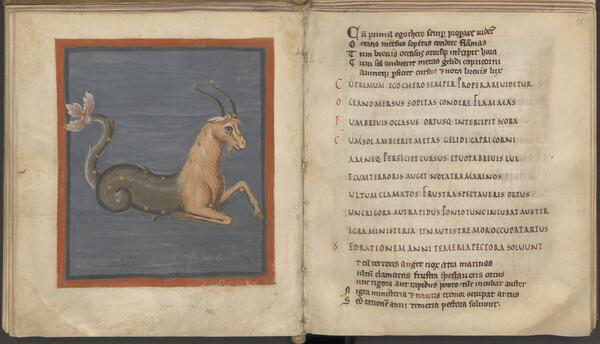 Cū primū egochero semp̱ propare videt̄
Oceano mersus sopitas condere flāmas
Tum brevis occasus ortusq; int̄cipit hora
Cum sol ambierit metas gelidi capricorni
CUPRIMUM EGOCHERO SEMPER PROPARE UIDETUR
OCEANO MERSUS SOPITAS CONDERE FLAMMAS
TUM BREUIS OCCASUS ORTUSQ INTERCIPIT HORA
CUM SOL AMBIERIT METAS GELIDI CAPRICORNI
AMNEQ PERFICIET CURSUS ET UOTA BREUIS LUX
TCUM TERRORIS AUGET NOX ATRA MARINOS
ULTUM CLAMATOS FRUSTRA SPECTAUERIS ORTUS
UNC RIGOR AUT RAPIDUS PONTO TUNC INCUBAT AUSTER
IGRA MINISTERIA ET NAUTIS TREMOR OCCUPAT ARTUS
SED RATIONEM ANNI TEMERIA PECTORA SOLUUNT
t cū terroris auget nox atra marinos
ultū clamatos frustra spectaveris ortus
unc rigor aut rapidus ponto tūc incubat auster
Nigra ministeria et nautis tremor occupat artus
Sed rationē anni temeria pectora soluunt.